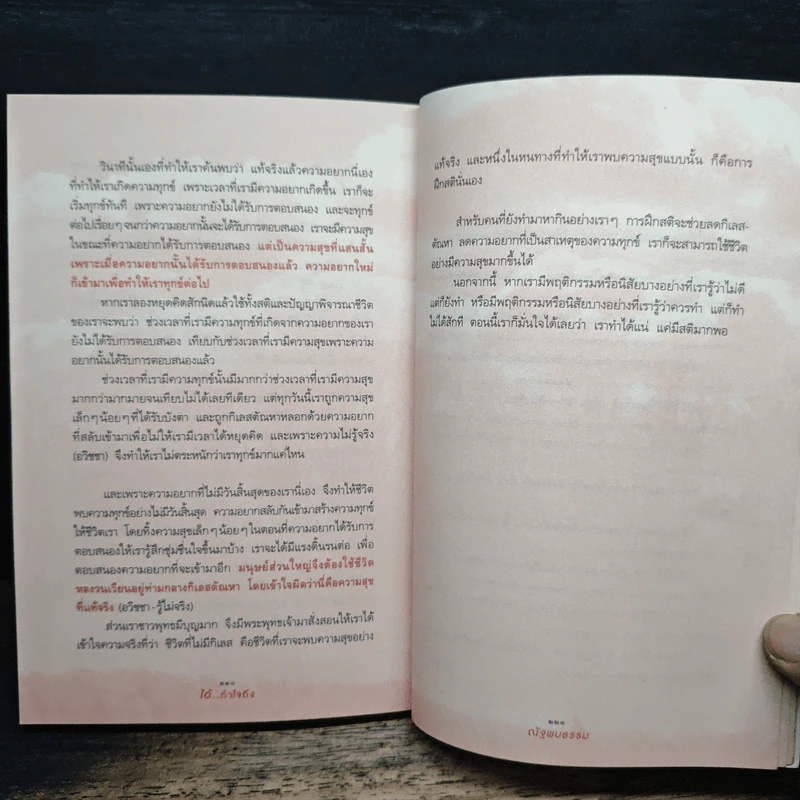 วินาทีนั้นเองที่ทำให้เราค้นพบว่า แท้จริงแล้วความอยากนี่เอง
ที่ทำให้เราเกิดความทุกข์ เพราะเวลาที่เรามีความอยากเกิดขึ้น เราก็จะ
เริ่มทุกข์ทันที เพราะความอยากยังไม่ได้รับการตอบสนอง และจะทุกข์
ต่อไปเรื่อยๆ จนกว่าความอยากนั้นจะได้รับการตอบสนอง เราจะมีความสุข
ในขณะที่ความอยากได้รับการตอบสนอง แต่เป็นความสุขที่แสนสั้น
เพราะเมื่อความอยากนั้นได้รับการตอบสนองแล้ว ความอยากใหม่
ก็เข้ามาเพื่อทำให้เราทุกข์ต่อไป
หากเราลองหยุดคิดสักนิดแล้วใช้ทั้งสติและปัญญาพิจารณาชีวิต
ของเราจะพบว่า ช่วงเวลาที่เรามีความทุกข์ที่เกิดจากความอยากของเรา
ยังไม่ได้รับการตอบสนอง เทียบกับช่วงเวลาที่เรามีความสุขเพราะความ
อยากนั้นได้รับการตอบสนองแล้ว
ช่วงเวลาที่เรามีความทุกข์นั้นมีมากกว่าช่วงเวลาที่เรามีความสุข
มากกว่ามากมายจนเทียบไม่ได้เลยทีเดียว แต่ทุกวันนี้เราถูกความสุข
เล็กๆ น้อยๆ ที่ได้รับบังตา และถูกกิเลสตัณหาหลอกด้วยความอยาก
ที่สลับเข้ามาเพื่อไม่ให้เรามีเวลาได้หยุดคิด และเพราะความไม่รู้จริง
(อวิชชา) จึงทำให้เราไม่ตระหนักว่าเราทุกข์มากแค่ไหน
และเพราะความอยากที่ไม่มีวันสิ้นสุดของเรานี่เอง จึงทำให้ชีวิต
พบความทุกข์อย่างไม่มีวันสิ้นสุด ความอยากสลับกันเข้ามาสร้างความทุกข์
ให้ชีวิตเรา โดยทิ้งความสุขเล็กๆ น้อยๆ ในตอนที่ความอยากได้รับการ
ตอบสนองให้เรารู้สึกชุ่มชื่นใจขึ้นมาบ้าง เราจะได้มีแรงดิ้นรนต่อ เพื่อ
ตอบสนองความอยากที่จะเข้ามาอีก มนุษย์ส่วนใหญ่จึงต้องใช้ชีวิต
หลงวนเวียนอยู่ท่ามกลางกิเลสตัณหา โดยเข้าใจผิดว่านี่คือความสุข
ที่แท้จริง (อวิชชา-รู้ไม่จริง)
ส่วนเราชาวพุทธมีบุญมาก จึงมีพระพุทธเจ้ามาสั่งสอนให้เราได้
เข้าใจความจริงที่ว่า ชีวิตที่ไม่มีกิเลส คือชีวิตที่เราจะพบความสุขอย่าง
๒๒๐
ได้...ถ้าใจถึง
แท้จริง และหนึ่งในหนทางที่ทำให้เราพบความสุขแบบนั้น ก็คือการ
ฝึกสตินั่นเอง
สำหรับคนที่ยังทำมาหากินอย่างเราๆ การฝึกสติจะช่วยลดกิเลส-
ตัณหา ลดความอยากที่เป็นสาเหตุของความทุกข์ เราก็จะสามารถใช้ชีวิต
อย่างมีความสุขมากขึ้นได้
นอกจากนี้ หากเรามีพฤติกรรมหรือนิสัยบางอย่างที่เรารู้ว่าไม่ดี
แต่ก็ยังทำ หรือมีพฤติกรรมหรือนิสัยบางอย่างที่เรารู้ว่าควรทำ แต่ก็ทำ
ไม่ได้สักที ตอนนี้เราก็มั่นใจได้เลยว่า เราทำได้แน่ แค่มีสติมากพอ
๒๒๑
ณัฐพบธรรม